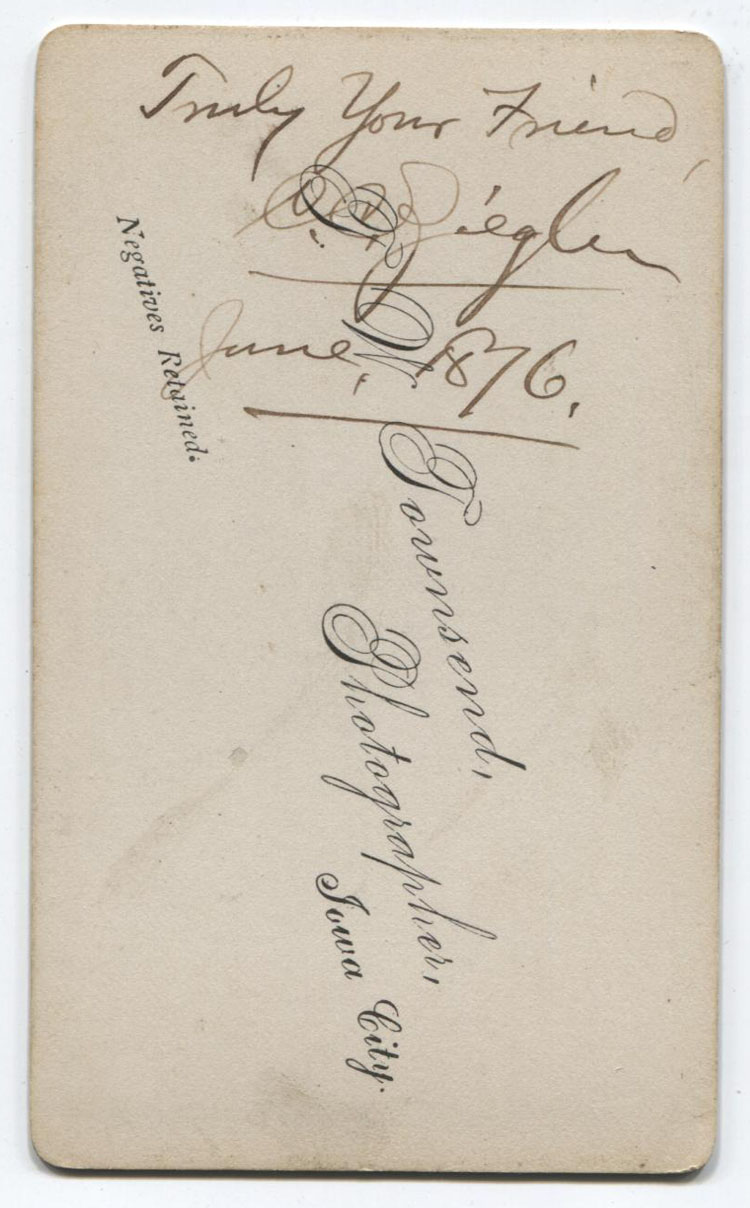 Truly Your Friend,
Ziegler
June, 1876.
T. W. Townsend,
Photographer,
Iowa City.
Negatives Retained.